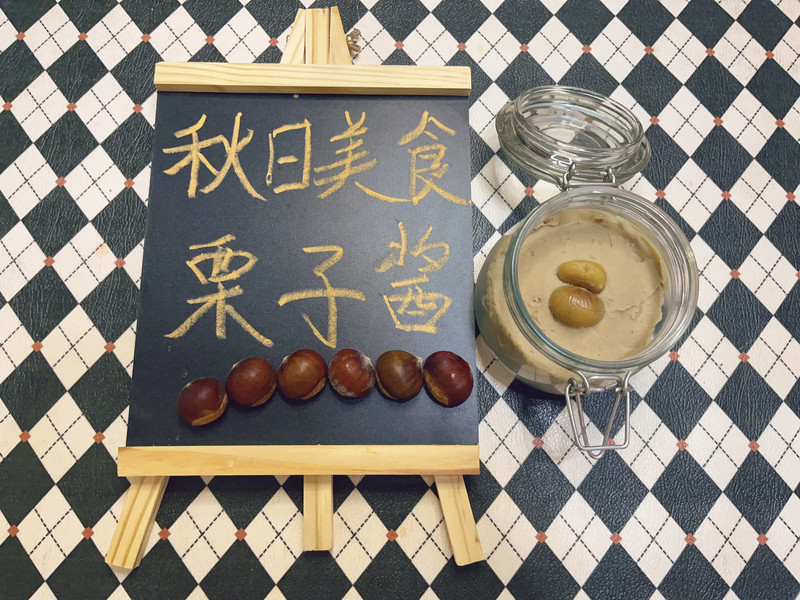 秋日美食
栗子酱